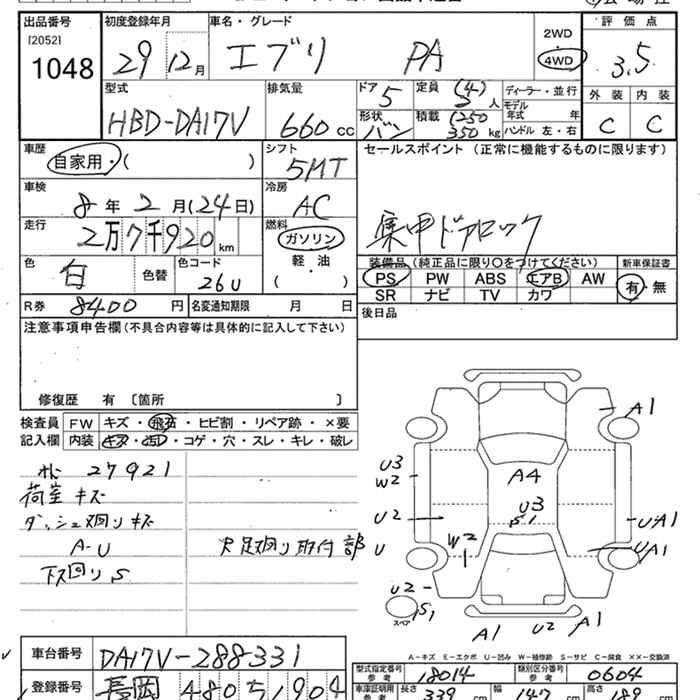 出品番号 初度登録年月 車名・グレード 2WD 評価点
[2052] 1048 29年12月 エブリ PA 4WD 3.5
型式 排気量 ドア 5 定員 (4) 5人 ディーラー・並行 外装 内装
HBD-DA17V 660cc 形状 バン 積載 (250) 350kg モデル年式 年 C C
ハンドル 左・右
車歴 自家用・( ) シフト 5MT セールスポイント (正常に機能するものに限ります)
車検 8年2月(24日) 冷房 AC
走行 2万7千920km 燃料 ガソリン 集中ドアロック
軽・油
( )
色 白 色替 色コード 26U 装備品 (純正品に限り○をつけてください) 新車保証書
PS PW ABS エアB AW 有・無
SR ナビ TV カワ
R券 8400円 名変通知期限 月 日 後日品
注意事項申告欄 (不具合内容等は具体的に記入して下さい)
修復歴 有 〔箇所 〕
検査員 FW キズ・飛石・ヒビ割・リペア跡・×要
記入欄 内装 キズ・凹・コゲ・穴・スレ・キレ・破レ
27921
荷室キズ
ダッシュ廻りキズ
A-U 足廻り取付部
下廻りS
A1
U3
W2 A4
U3
S1
U2 U-A1
U W2 UA1
U2
S1
スペア
A1 U2 A1
A-キズ E-エクボ U-凹み W-補修跡 S-サビ C-腐食 ××-交換済
車台番号 DA17V-288331 型式指定番号 参考 18014 類別区分番号 参考 0604
登録番号 長岡 480 ち 1904 車庫証明用 参考 長さ 339cm 幅 147cm 高さ 189cm